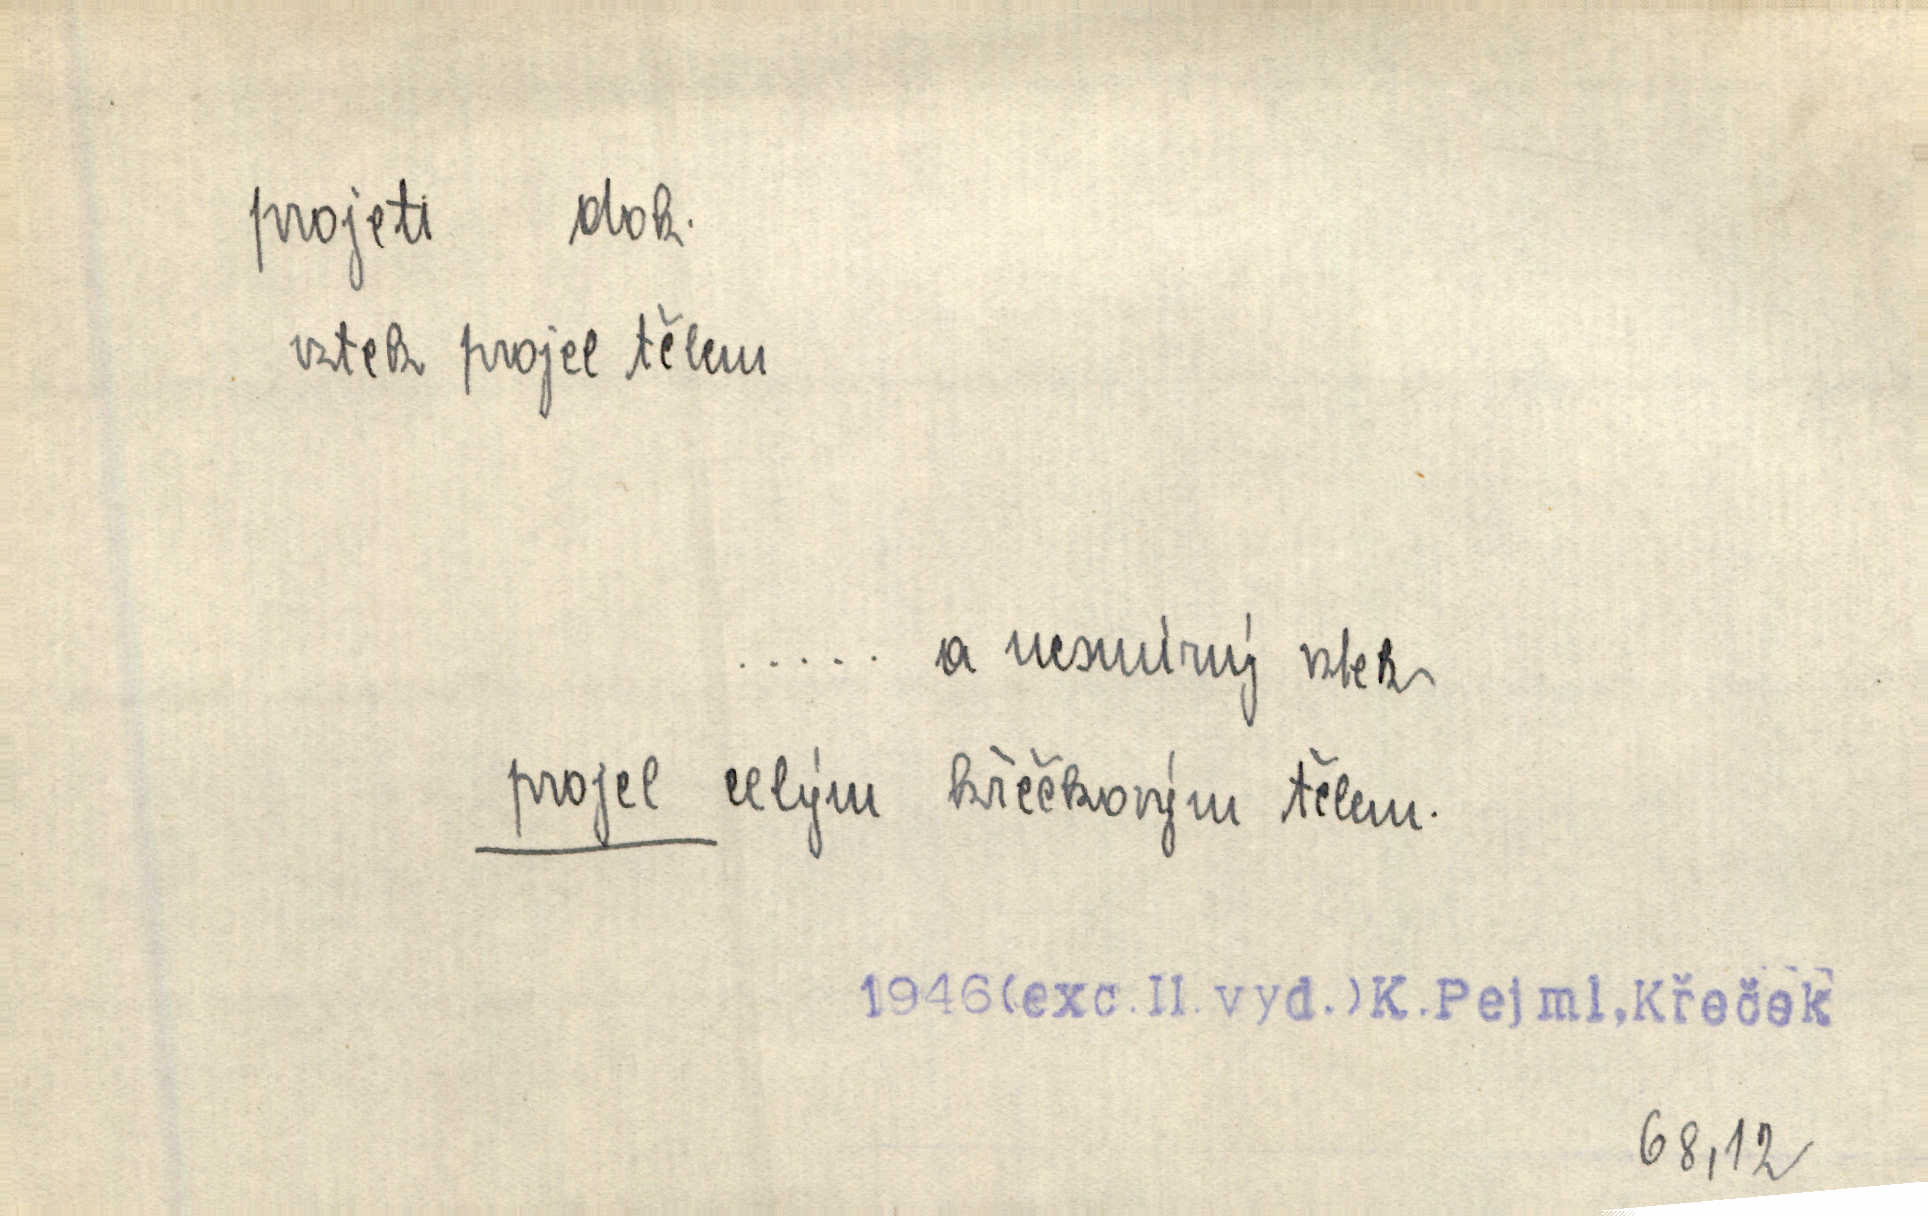 projeti dok.
vztek projel tělem
..... a nesmírný vztek
projel celým křečkovým tělem.
1946(exc.II.vyd.)K.Pejml,Křeček
68,12